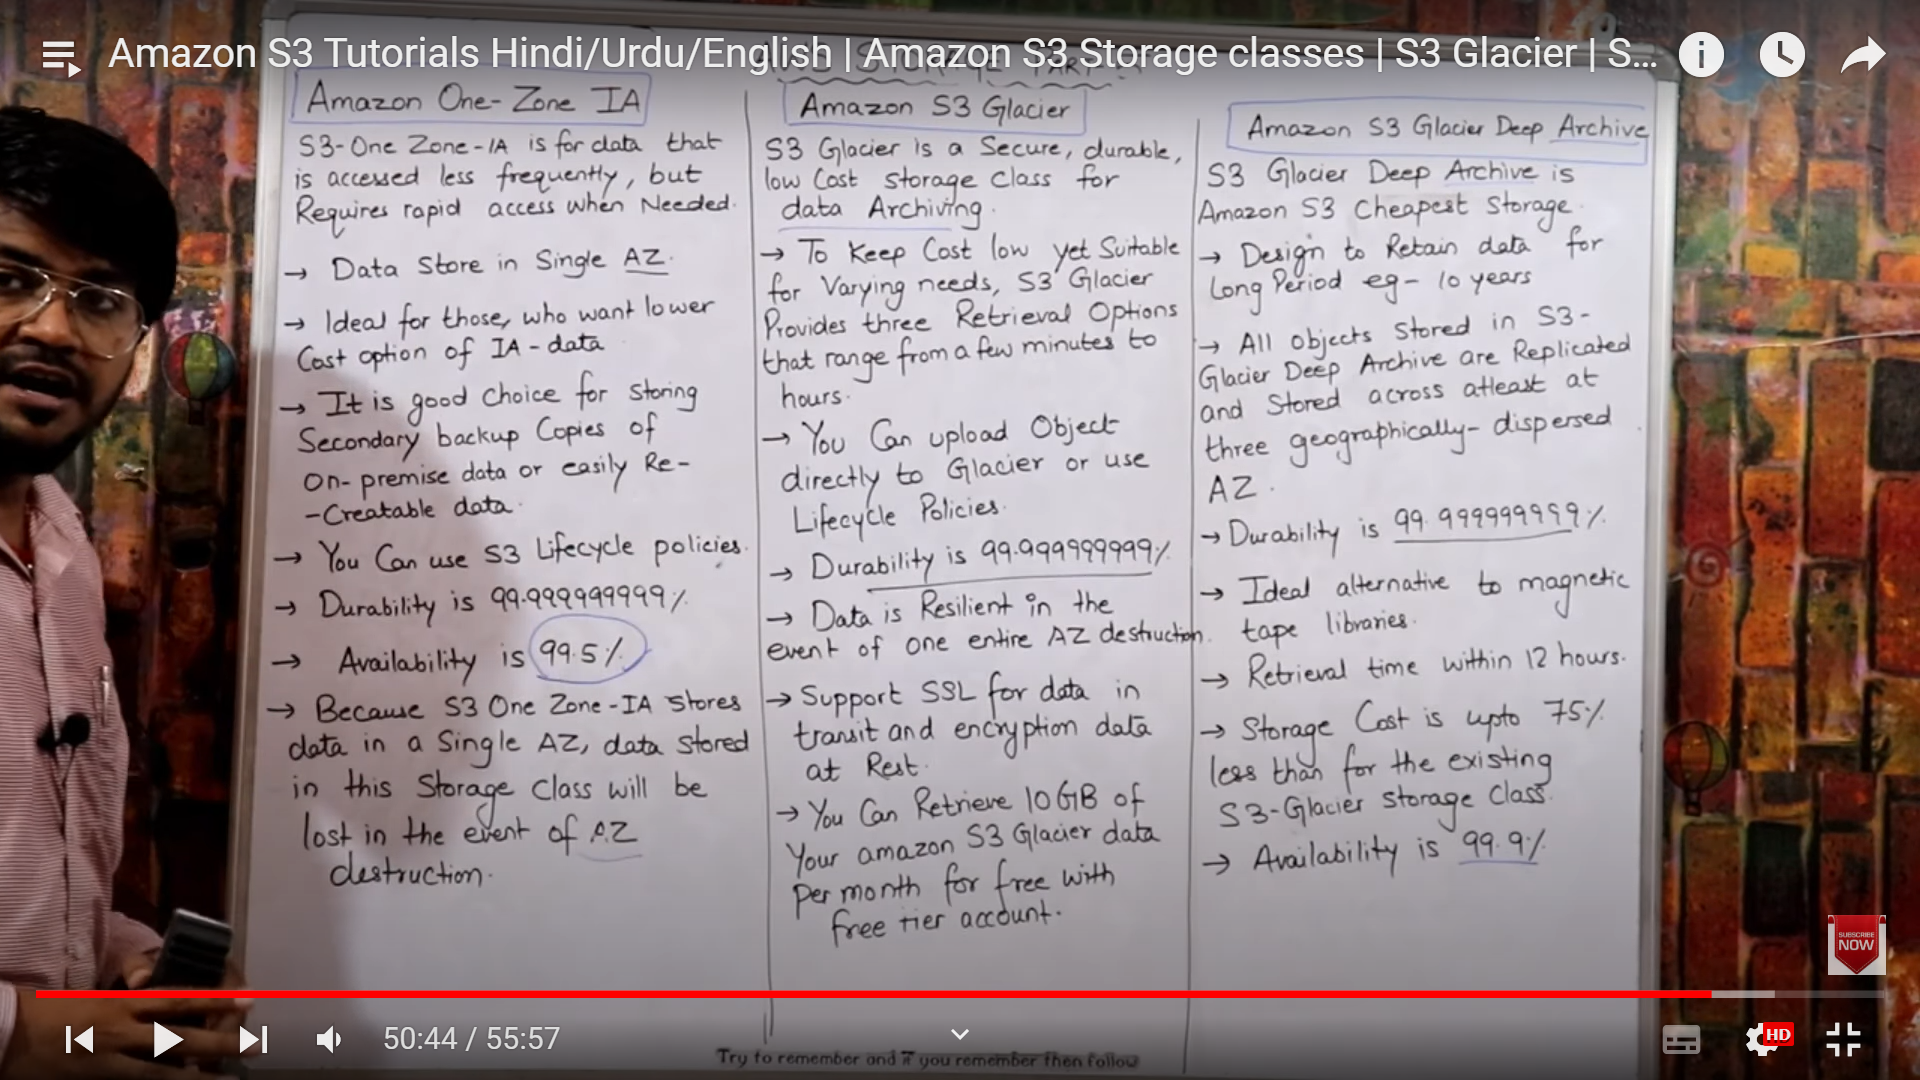 Amazon S3 Tutorials Hindi/Urdu/English | Amazon S3 Storage classes | S3 Glacier | S...
Amazon One-Zone IA
S3-One Zone-IA is for data that
is accessed less frequently, but
Requires rapid access when Needed.
→ Data Store in Single AZ.
→ Ideal for those, who want lower
Cost option of IA-data
→ It is good Choice for storing
Secondary backup Copies of
On-premise data or easily Re-
-Creatable data.
→ You Can use S3 Lifecycle policies.
→ Durability is 99.999999999%
→ Availability is 99.5%
→ Because S3 One Zone-IA stores
data in a Single AZ, data stored
in this Storage Class will be
lost in the event of AZ
destruction.
Amazon S3 Glacier
S3 Glacier is a Secure, durable,
low Cost storage Class for
data Archiving.
→ To Keep Cost low yet Suitable
for Varying needs, S3 Glacier
Provides three Retrieval Options
that range from a few minutes to
hours.
→ You Can upload Object
directly to Glacier or use
Lifecycle Policies.
→ Durability is 99.999999999%
→ Data is Resilient in the
event of one entire AZ destruction.
→ Support SSL for data in
transit and encryption data
at Rest.
→ You Can Retrieve 10GB of
Your amazon S3 Glacier data
Per month for free with
free tier account.
Amazon S3 Glacier Deep Archive
S3 Glacier Deep Archive is
Amazon S3 Cheapest Storage.
→ Design to Retain data for
Long Period eg- 10 years
→ All objects stored in S3-
Glacier Deep Archive are Replicated
and Stored across atleast at
three geographically-dispersed
AZ.
→ Durability is 99.999999999%
→ Ideal alternative to magnetic
tape libraries.
→ Retrieval time within 12 hours.
→ Storage Cost is upto 75%
less than for the existing
S3-Glacier storage Class.
→ Availability is 99.9%
SUBSCRIBE
NOW
50:44 / 55:57
HD
Try to remember and if you remember then follow